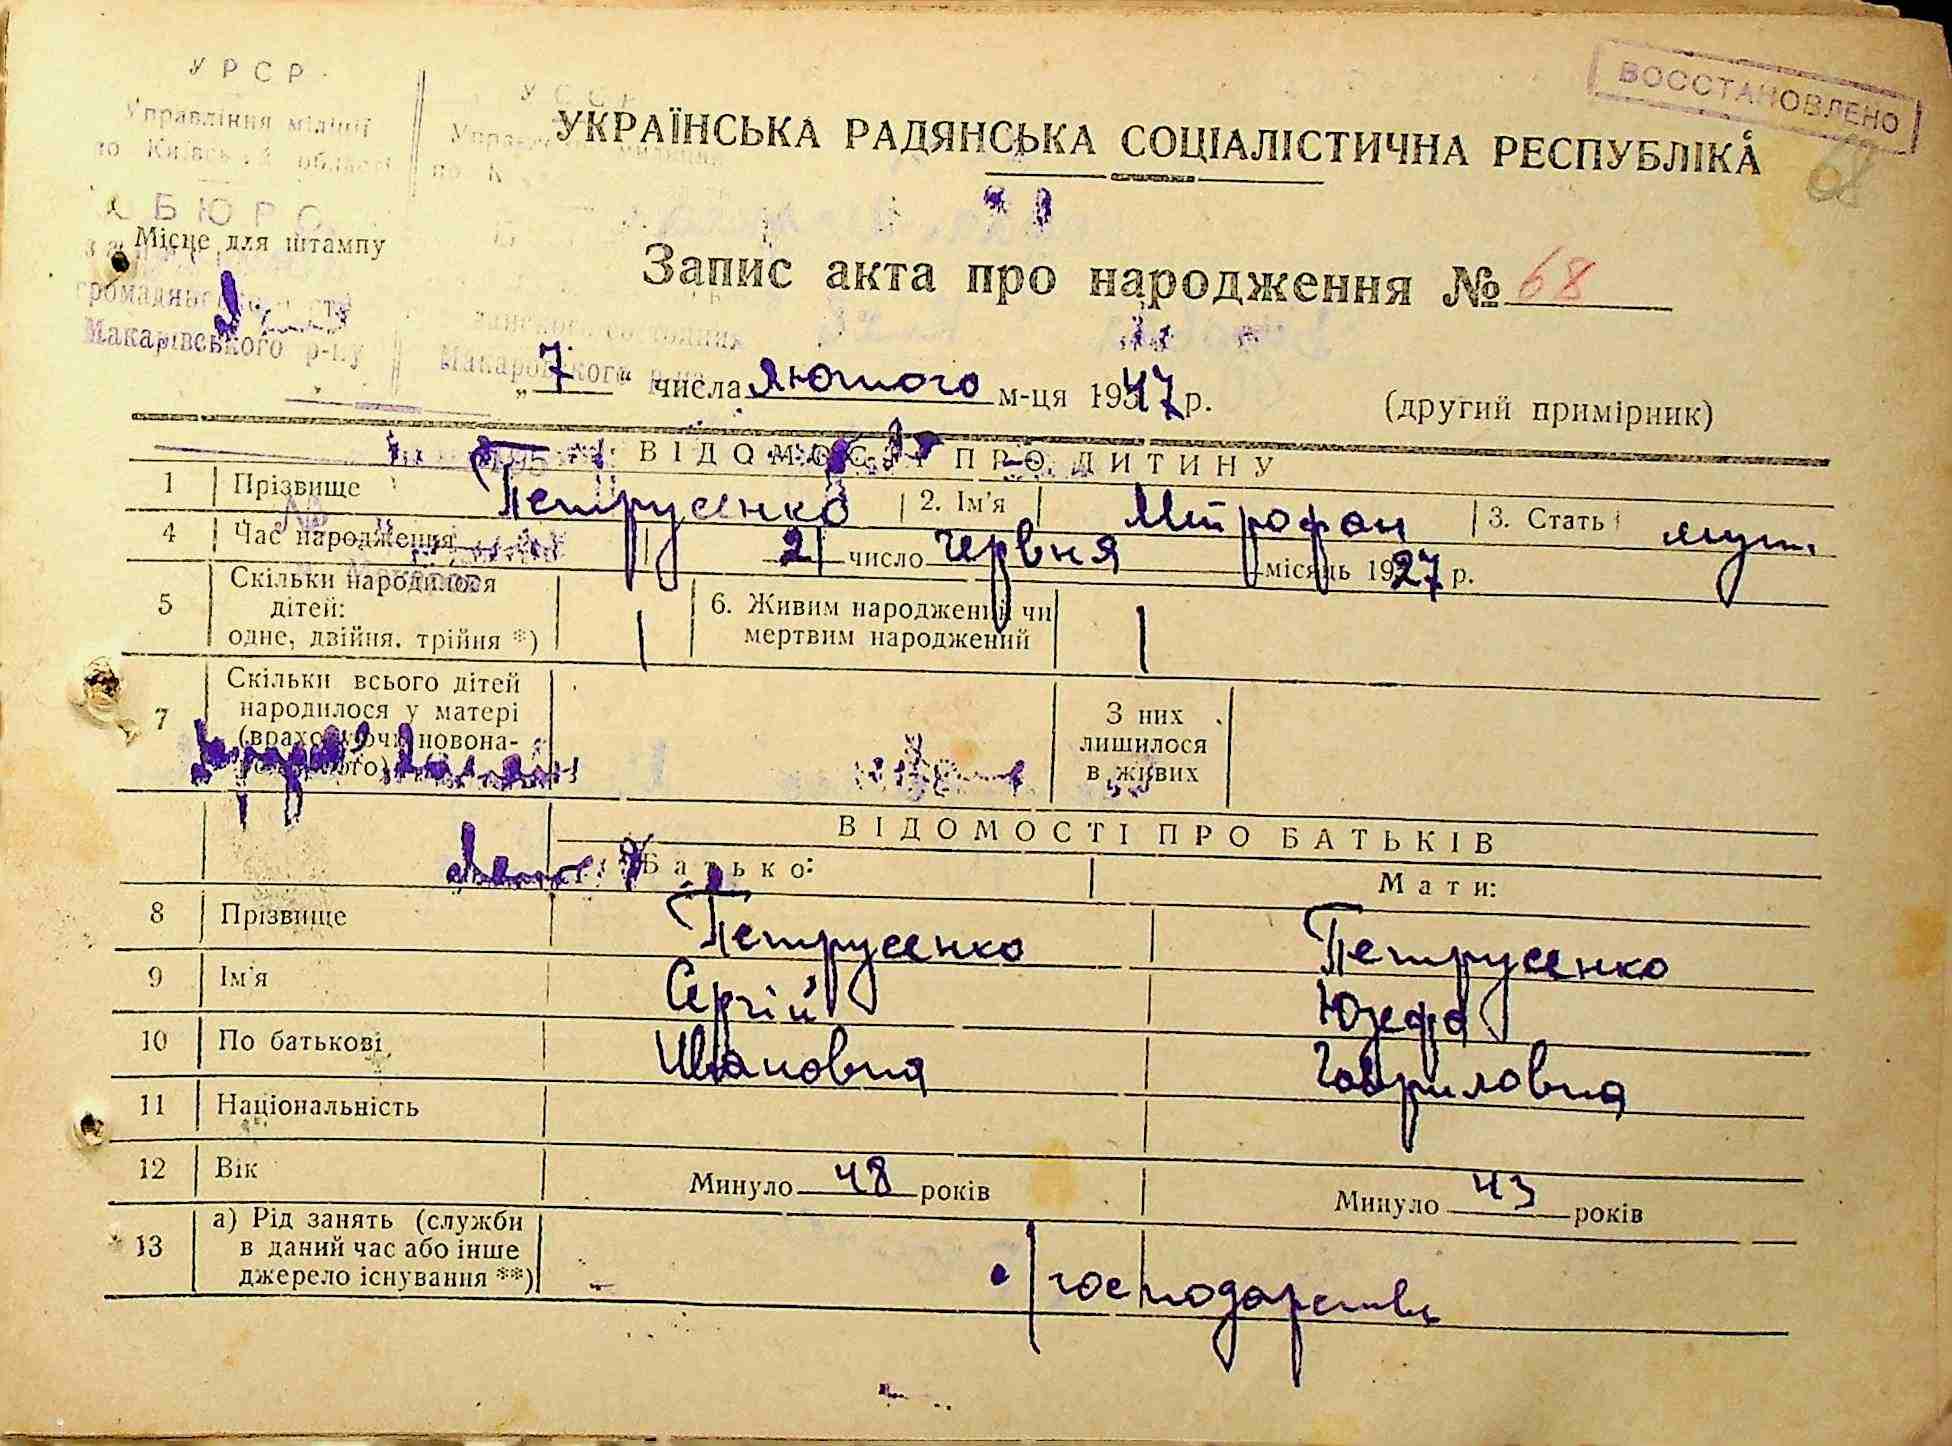 УРСР
Управління міліції
по Київській області
БЮРО
Місце для штампу
Макарівського р-ну
УССР
Макаровского р-на
ВОССТАНОВЛЕНО
68
УКРАЇНСЬКА РАДЯНСЬКА СОЦІАЛІСТИЧНА РЕСПУБЛІКА
Запис акта про народження № 68
„7“ числа лютого м-ця 1947 р. (другий примірник)
ВІДОМОСТІ ПРО ДИТИНУ
1 Прізвище Петрусенко 2. Ім'я Митрофан 3. Стать муж.
4 Час народження 21 число червня місяць 1927 р.
5 Скільки народилося дітей: одне, двійня, трійня *) 6. Живим народжений чи мертвим народжений
7 Скільки всього дітей народилося у матері (враховуючи новона- З них лишилося в живих
ВІДОМОСТІ ПРО БАТЬКІВ
Батько: Мати:
8 Прізвище Петрусенко Петрусенко
9 Ім'я Сергій Юзефа
10 По батькові Івановна Гавриловна
11 Національність
12 Вік Минуло 48 років Минуло 43 років
13 а) Рід занять (служби в даний час або інше джерело існування **) господарстві